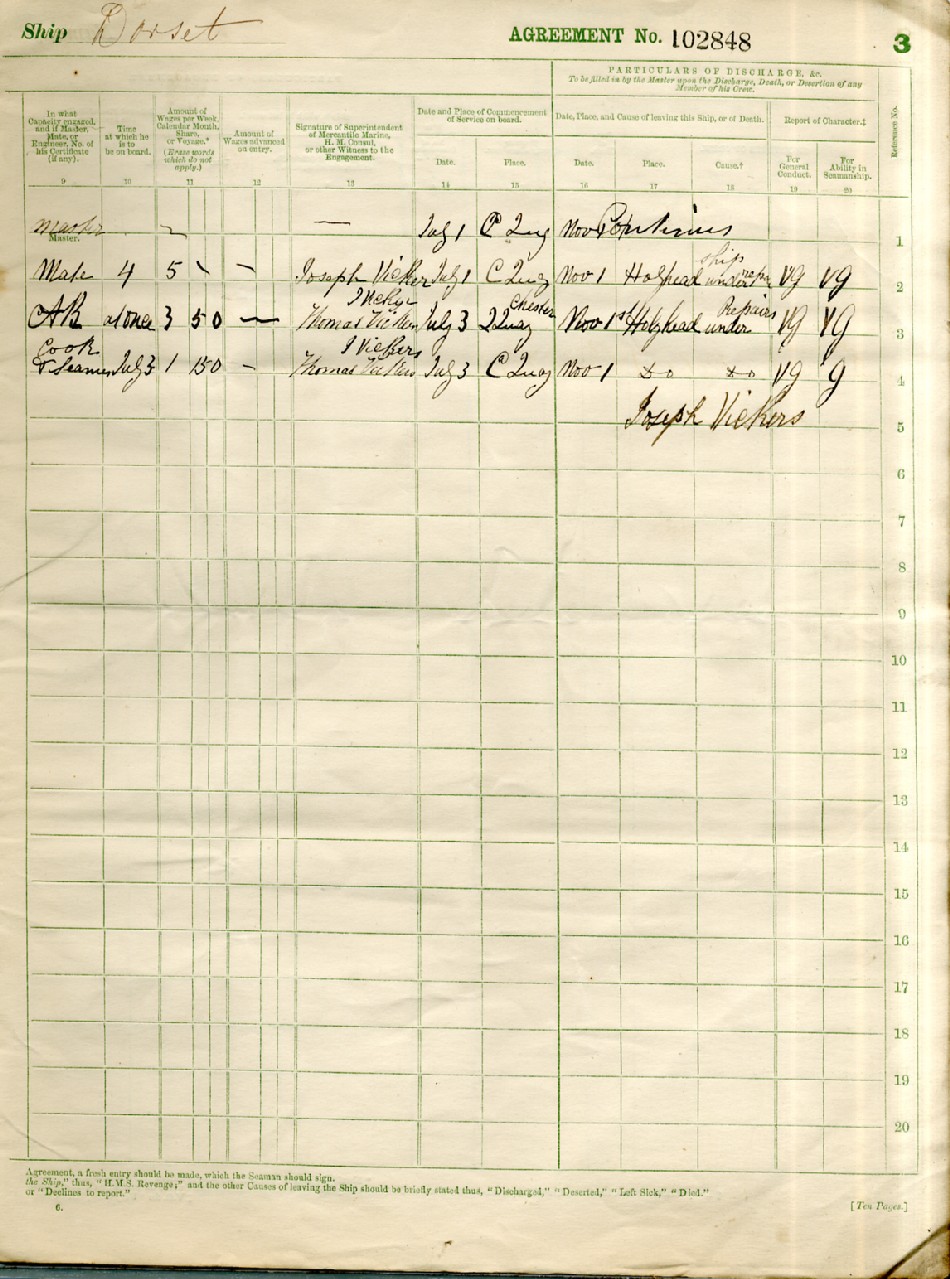 Ship Dorset AGREEMENT No. 102848 3
PARTICULARS OF DISCHARGE, &c.
To be filled in by the Master upon the Discharge, Death, or Desertion of any
Member of his Crew.
In what
Capacity engaged,
and if Master,
Mate, or
Engineer, No. of
his Certificate
(if any).
Time
at which he
is to
be on board.
Amount of
Wages per Week,
Calendar Month,
Share,
or Voyage.*
(Erase words
which do not
apply.)
Amount of
Wages advanced
on entry.
Signature of Superintendent
of Mercantile Marine,
H. M. Consul,
or other Witness to the
Engagement.
Date and Place of Commencement
of Service on board.
Date. Place.
Date, Place, and Cause of leaving this Ship, or of Death.
Date. Place. Cause.†
Report of Character.‡
For
General
Conduct.
For
Ability in
Seamanship.
Reference No.
9 10 11 12 13 14 15 16 17 18 19 20
Master — July 1 C Quay Nov Continues 1
Master.
ship
Mate 4 5 Joseph Vickers July 1 C Quay Nov 1 Holyhead under repairs VG VG 2
Chester Repairs
AB at once 3 50 — Thomas Vickers July 3 Quay Nov 1st Holyhead under VG VG 3
Cook J Vickers
& Seaman July 3 1 150 - Thomas Vickers July 3 C Quay Nov 1 do do VG G 4
Joseph Vickers
5
6
7
8
9
10
11
12
13
14
15
16
17
18
19
20
Agreement, a fresh entry should be made, which the Seaman should sign.
the Ship," thus, "H.M.S. Revenge;" and the other Causes of leaving the Ship should be briefly stated thus, "Discharged," "Deserted," "Left Sick," "Died."
or "Declines to report."
6. [Ten Pages.]